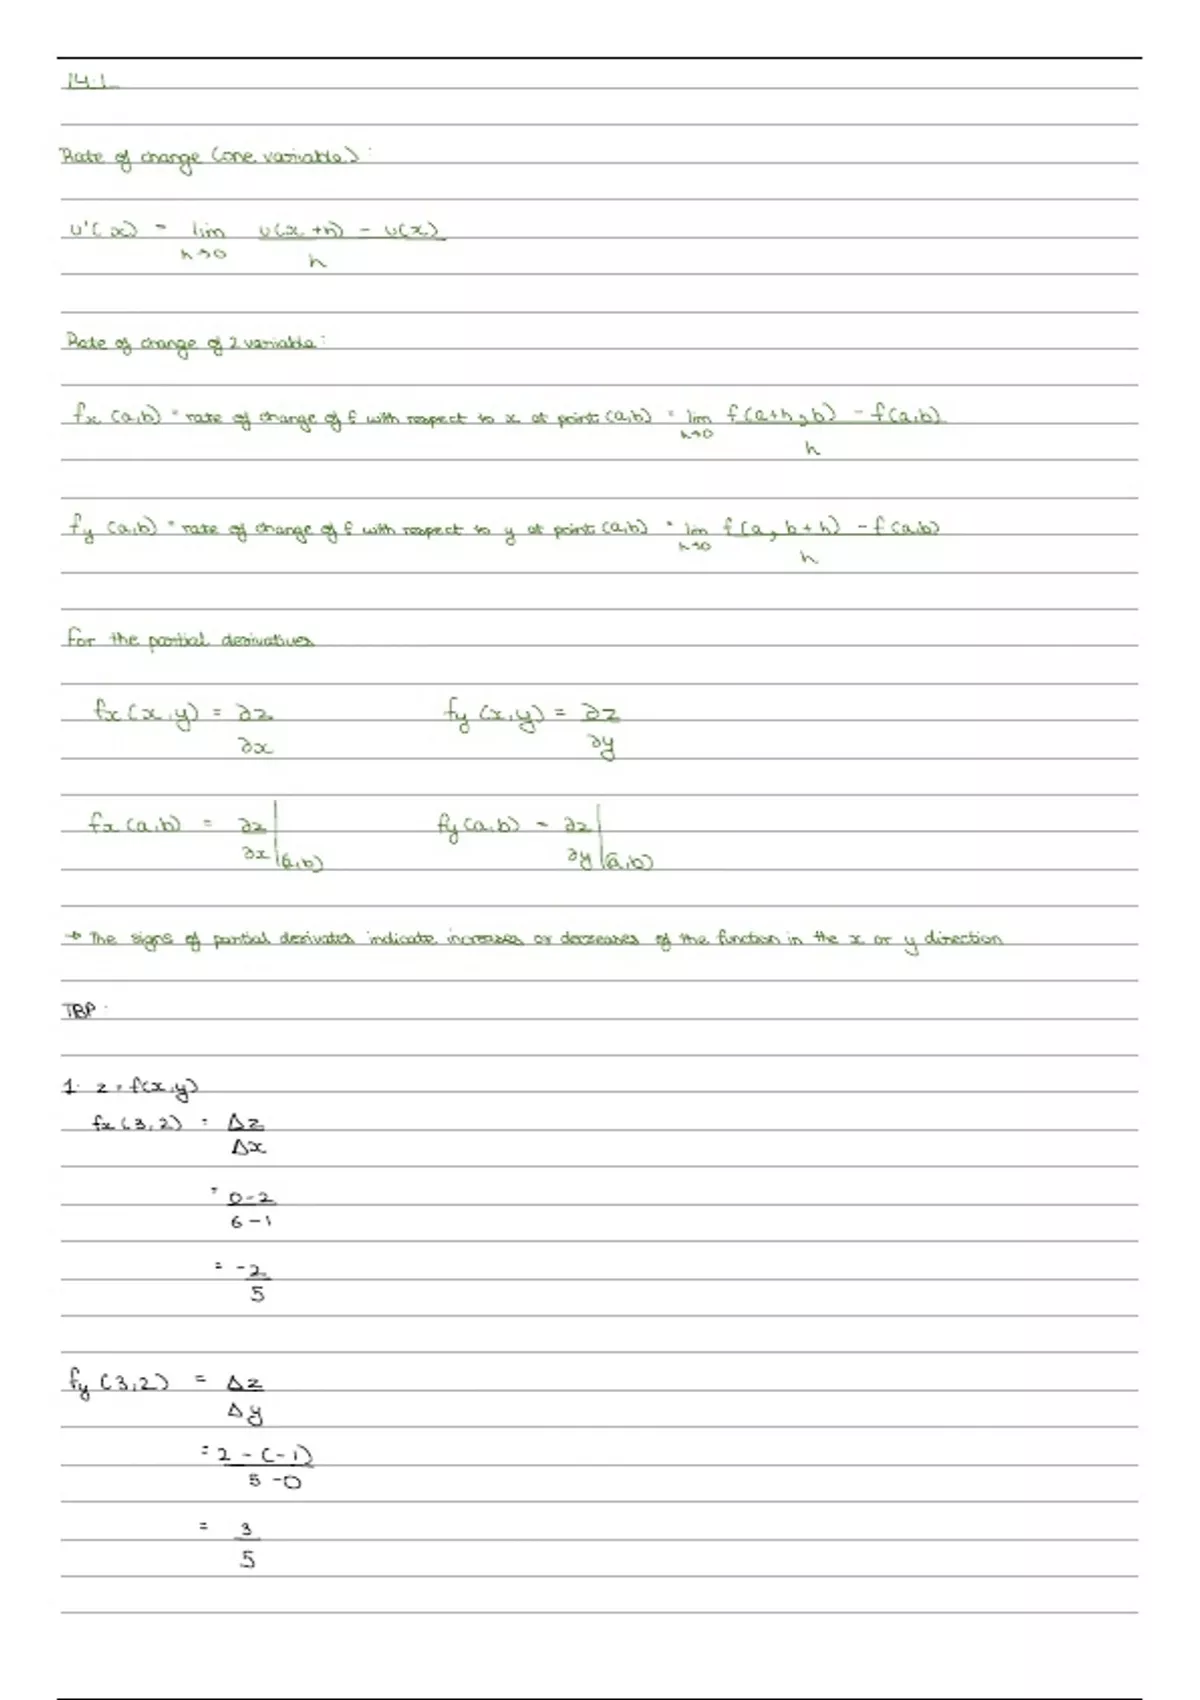 14.1
Rate of change (one variable):
u'(x) = lim u(x+h) - u(x)
h→0 h
Rate of change of 2 variable:
fx (a,b) = rate of change of f with respect to x at point (a,b) = lim f(a+h, b) - f(a,b)
h→0 h
fy (a,b) = rate of change of f with respect to y at point (a,b) = lim f(a, b+h) - f(a,b)
h→0 h
for the partial derivatives
fx(x,y) = ∂z fy(x,y) = ∂z
∂x ∂y
fx(a,b) = ∂z| fy(a,b) = ∂z|
∂x|(a,b) ∂y|(a,b)
→ The signs of partial derivates indicate increases or decreases of the function in the x or y direction
TBP:
1. z = f(x,y)
fx(3,2) = Δz
Δx
= 0-2
6-1
= -2
5
fy(3,2) = Δz
Δy
= 2 - (-1)
5 - 0
= 3
5